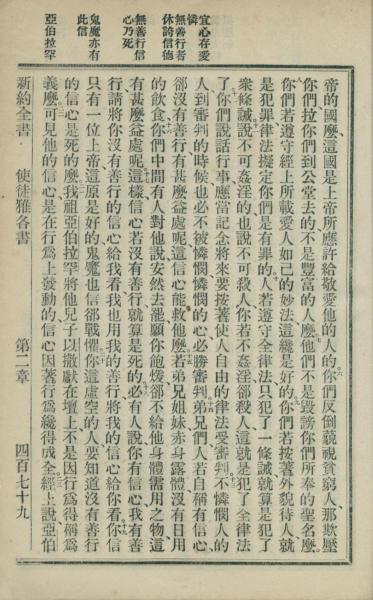 宜心存愛
憐
無善行者
休誇信德
無善行信
心乃死
鬼魔亦有
此信
亞伯拉罕
帝的國麼、這國是上帝所應許給敬愛他的人的、你們反倒藐視貧窮人、那欺壓
你們拉你們到公堂去的、不是豐富的人麼、他們不是毀謗你們所奉的聖名麼、
你們若遵守經上所載愛人如己的妙法、這纔是好的、你們若按著外貌待人、就
是犯罪、律法擬定你們是有罪的、人若遵守全律法、只犯了一條誡、就算是犯了
衆條誡、說不可姦淫的、也說不可殺人、你若不姦淫、卻殺人、這就是犯了全律法
了、你們說話行事、應當記念將來要按著使人自由的律法受審判、不憐憫人的
人、到審判的時候、也必不被憐憫、憐憫的心必勝審判、弟兄們、人若自稱有信心、
卻沒有善行、有甚麼益處呢、這信心能救他麼、若弟兄姐妹赤身露體、沒有日用
的飲食、你們中間有人對他說、安然去罷、願你飽煖、卻不給他身體需用之物、這
有甚麼益處呢、這樣信心若沒有善行、就算是死的、必有人說、你有信心、我有善
行、請將你沒有善行的信心給我看、我也用我的善行、將我的信心給你看、你信
只有一位上帝、這原是好的、鬼魔也信、卻戰懼、你這虛空的人、要知道沒有善行
的信心是死的麼、我祖亞伯拉罕、將他兒子以撒獻在壇上、不是因行爲得稱爲
義麼、可見他的信心是在行爲上發動的、信心因著行爲纔得成全、經上說、亞伯
新約全書　使徒雅各書　第二章　四百七十九